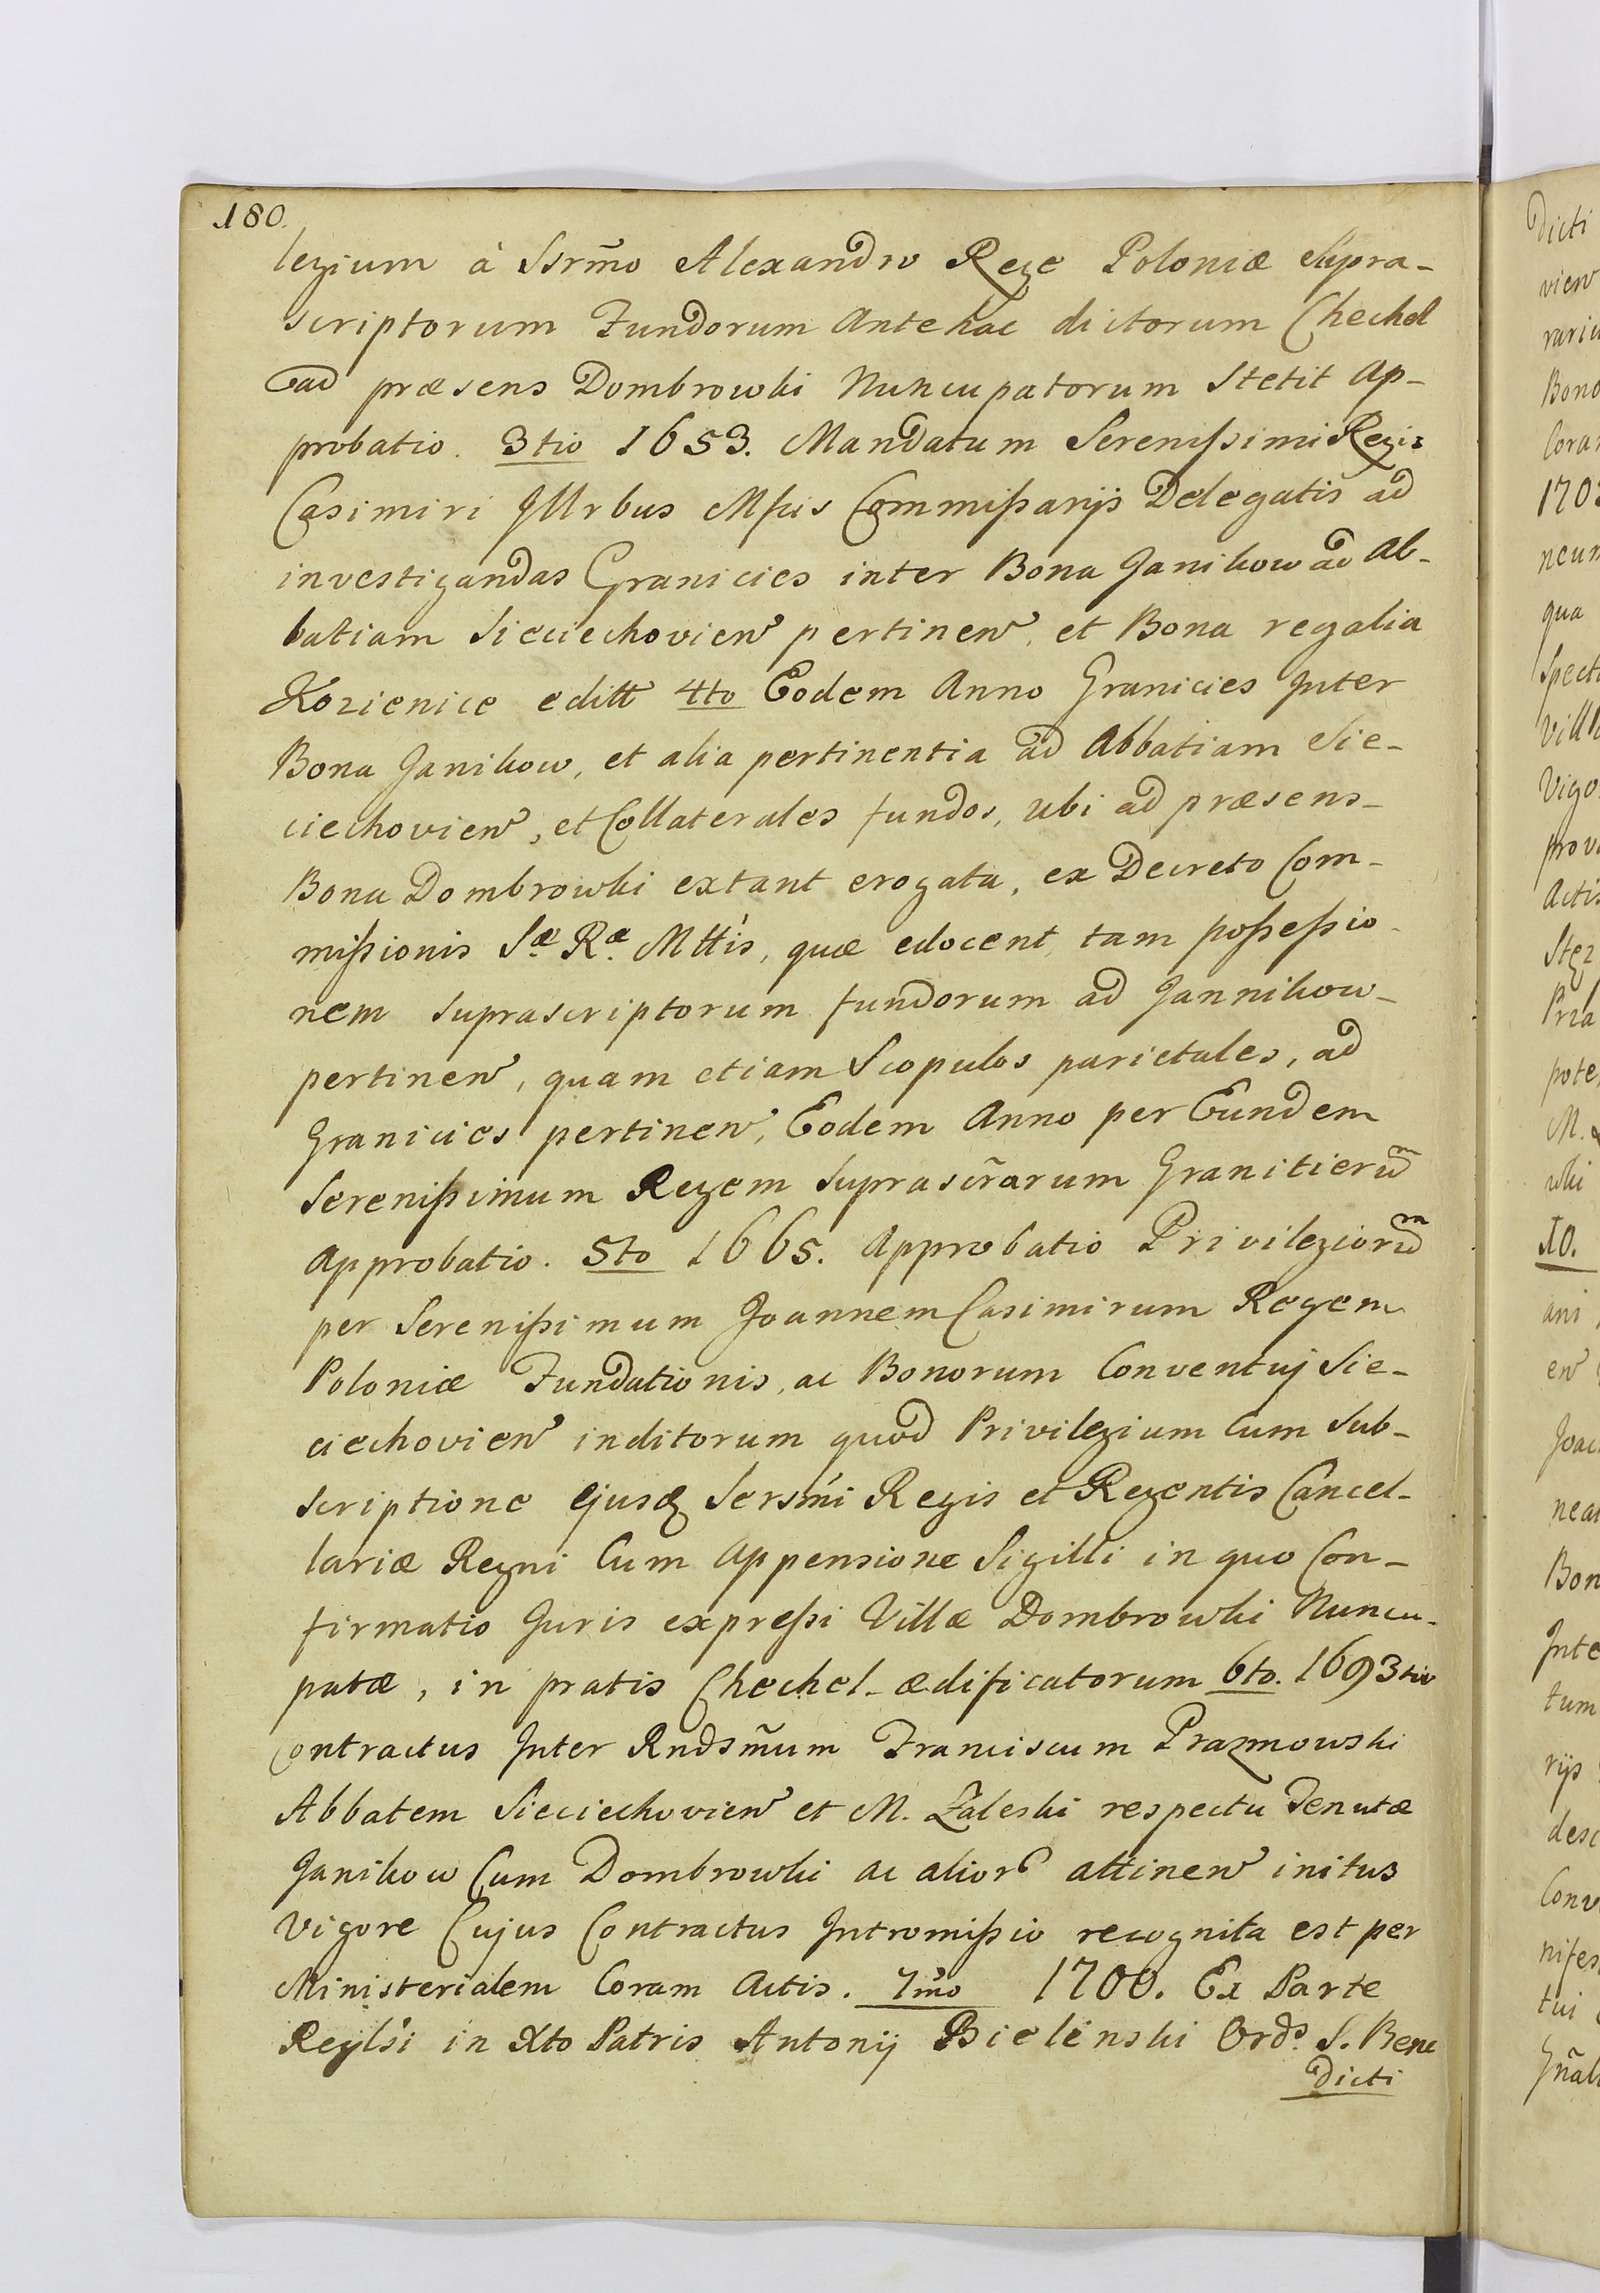 180.
legium à Ssrm̃o Alexandro Rege Poloniæ Supra-
scriptorum Fundorum Antehac dictorum Chechel
ad præsens Dombrowki Nuncupatorum Stetit Ap-
probatio. 3tio 1653. Mandatum Serenißimi Regis
Casimiri Jllrbus Mſicis Commißarijs Delegatis ad
investigandas Granicies inter Bona Janikow ad Ab-
batiam Sieciechovien̄ pertinen̄, et Bona regalia
Kozienice editt 4to Eodem Anno Granicies Jnter
Bona Janikow, et alia pertinentia ad Abbatiam Sie-
ciechovien̄, et Collaterales fundos, ubi ad præsens-
Bona Dombrowki extant erogata, ex Decreto Com-
mißionis S.æ R.æ Mttis, quæ edocent, tam poßeßio-
nem suprascriptorum fundorum ad Jannikow-
pertinen̄, quam etiam Scopulos parietales, ad
Granicies pertinen̄, Eodem Anno per Eundem
Serenißimum Regem suprascr̃arum Granitierum
Approbatio. 5to 1665. Approbatio Privilegiorum
per Serenißimum Joannem Casimirum Regem
Poloniæ Fundationis, ac Bonorum Conventuj Sie-
ciechovien̄ inditorum quod Privilegium Cum Sub-
scriptione ejusq Sersm̃i Regis et Regentis Cancel-
lariæ Regni Cum Appensione Sigilli in quo Con-
firmatio Juris expreßi Villæ Dombrowki Nuncu-
patæ, in pratis Chechel- ædificatorum 6to. 1693tio
Contractus Jnter Rndsm̃um Franciscum Prazmowski
Abbatem Sieciechovien̄ et M. Zaleski respectu Tenutæ
Janikow Cum Dombrowki ac alior attinen̄ initus
Vigore Cujus Contractus Jntromißio recognita est per
Ministerialem Coram Actis. 7mo 1700. Ex Parte
Reglsi in Xto Patris Antonij Bielinski Ord. S. Bene
dicti
Dicti
Bono
1703
neum
qua
Actis
M.
10.
ani
en̄
Bon
Jnte
tum
rijs
desc
Conv
tui